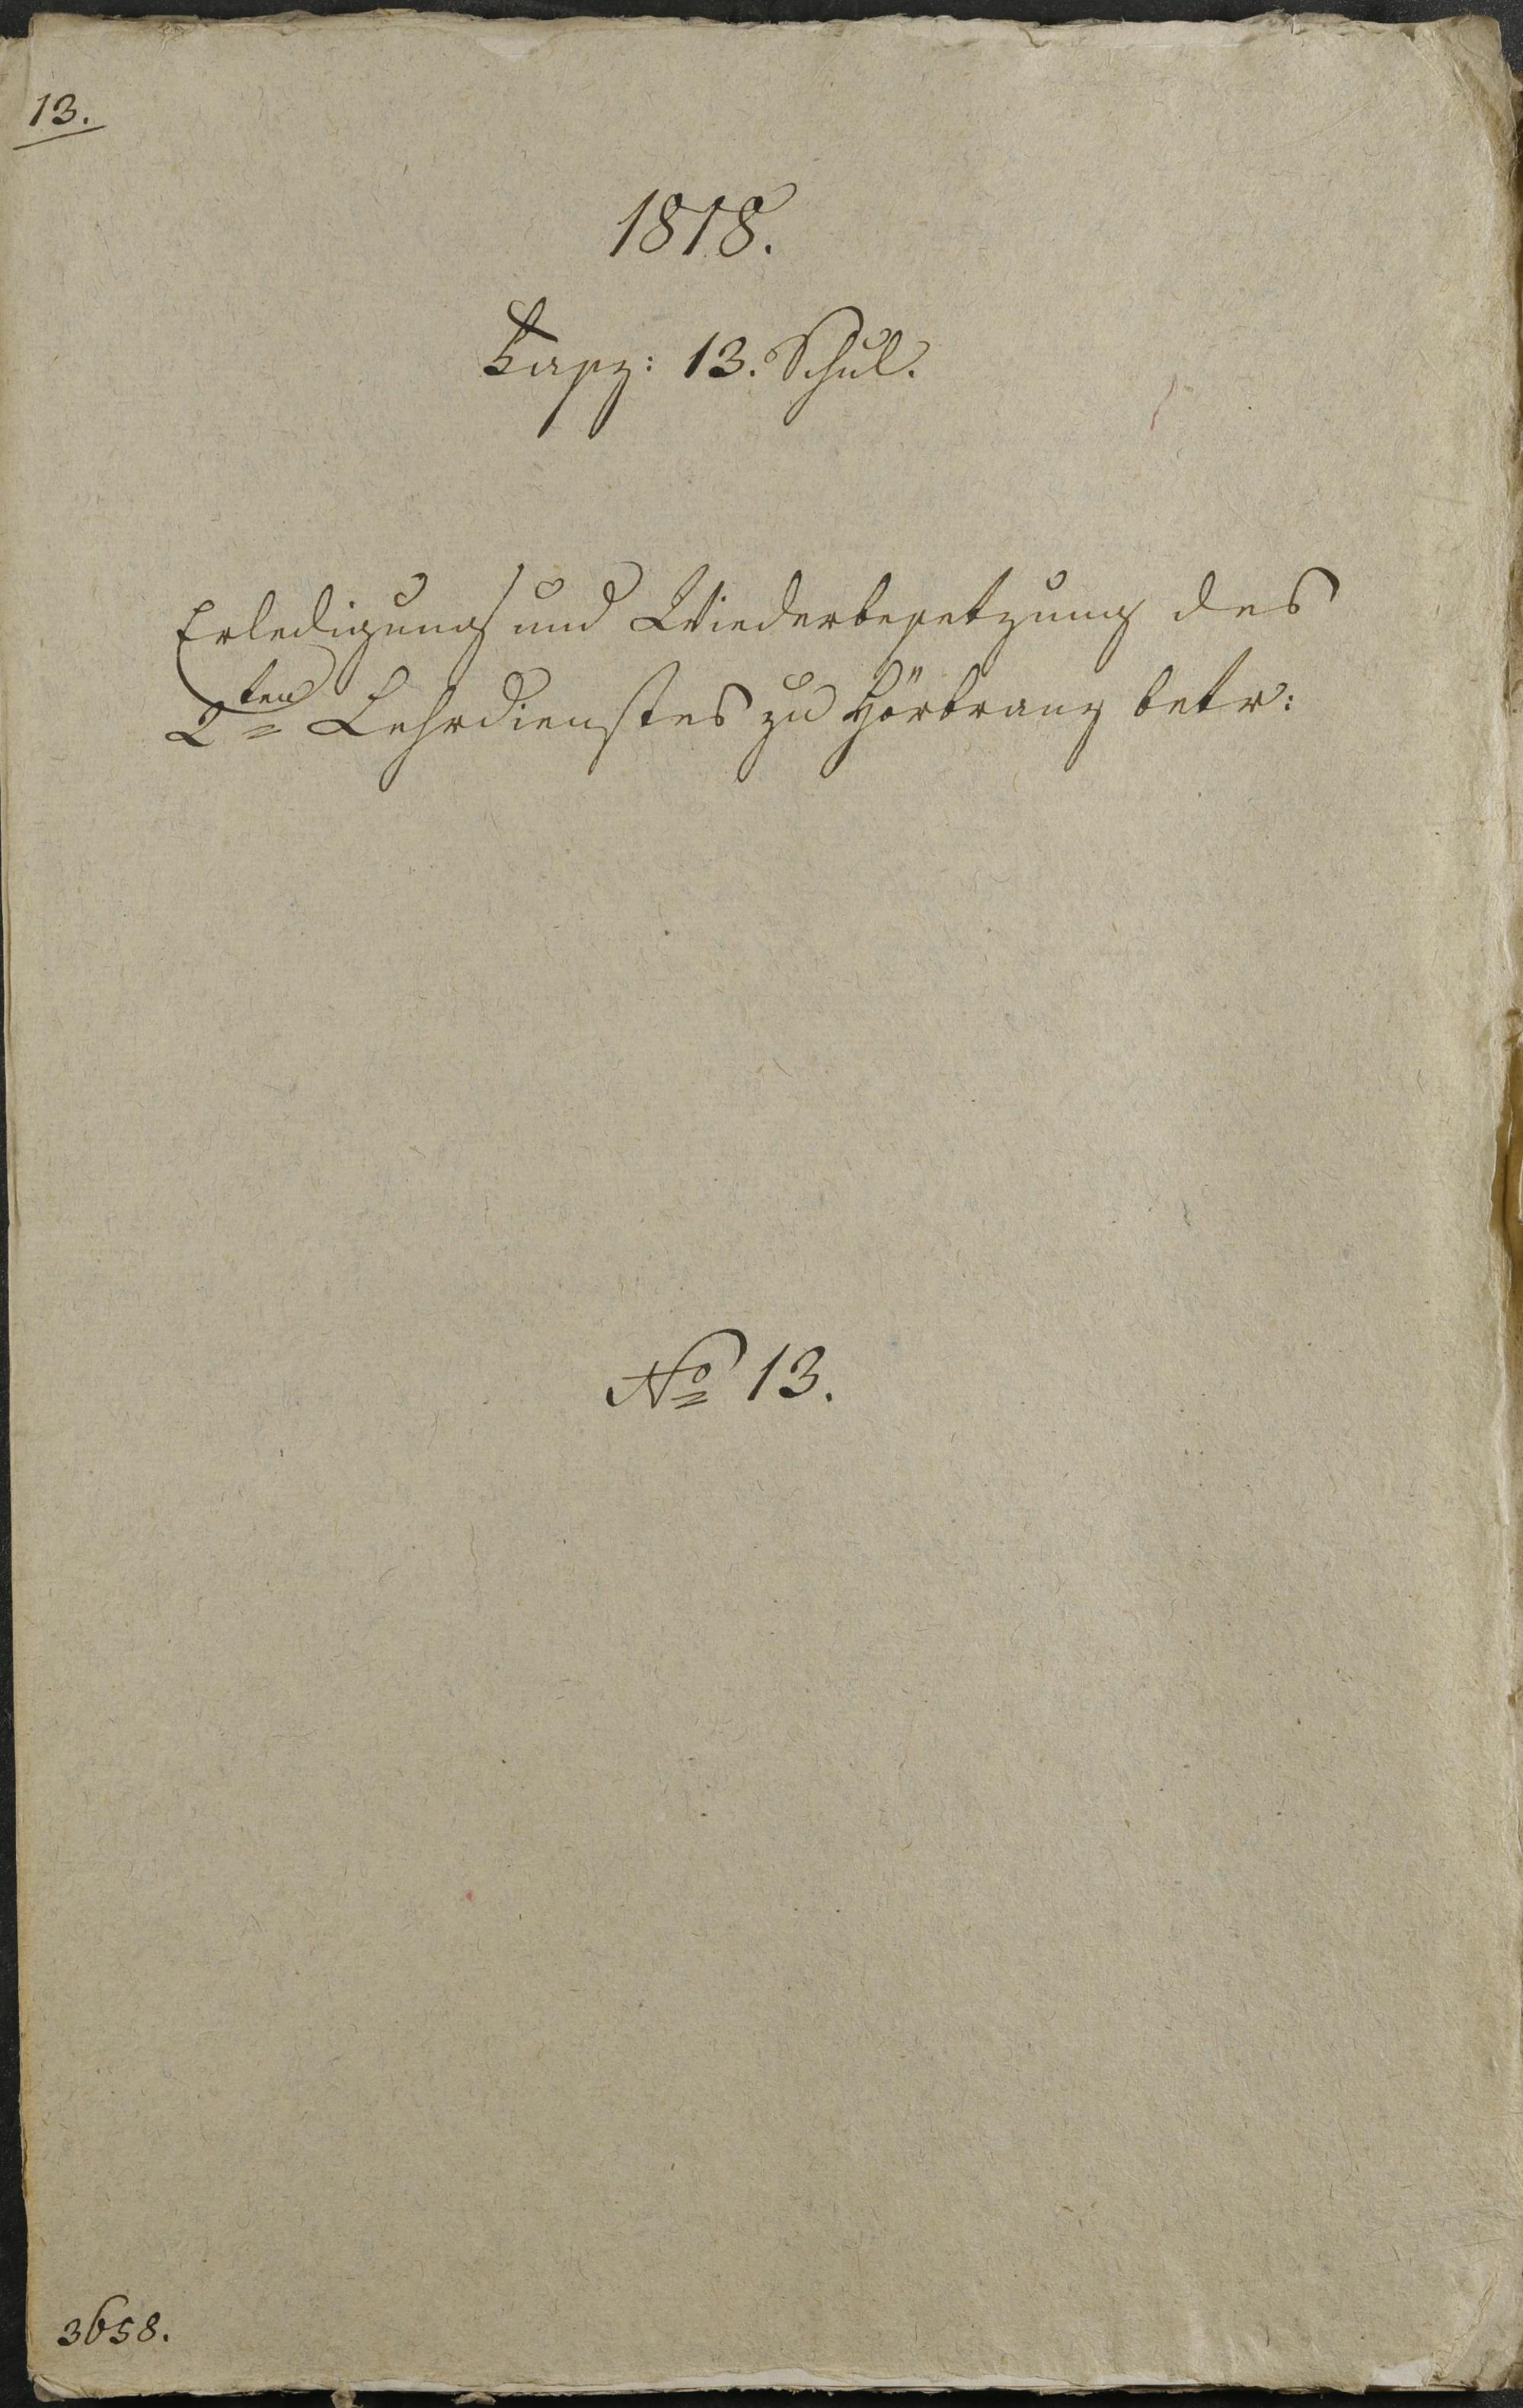 13.
1818.
Fasz: 13. Schul.
Erledigung und Wiederbesetzung des
2ten Lehrdienstes zu Hörbranz betr:
No 13.
3658.